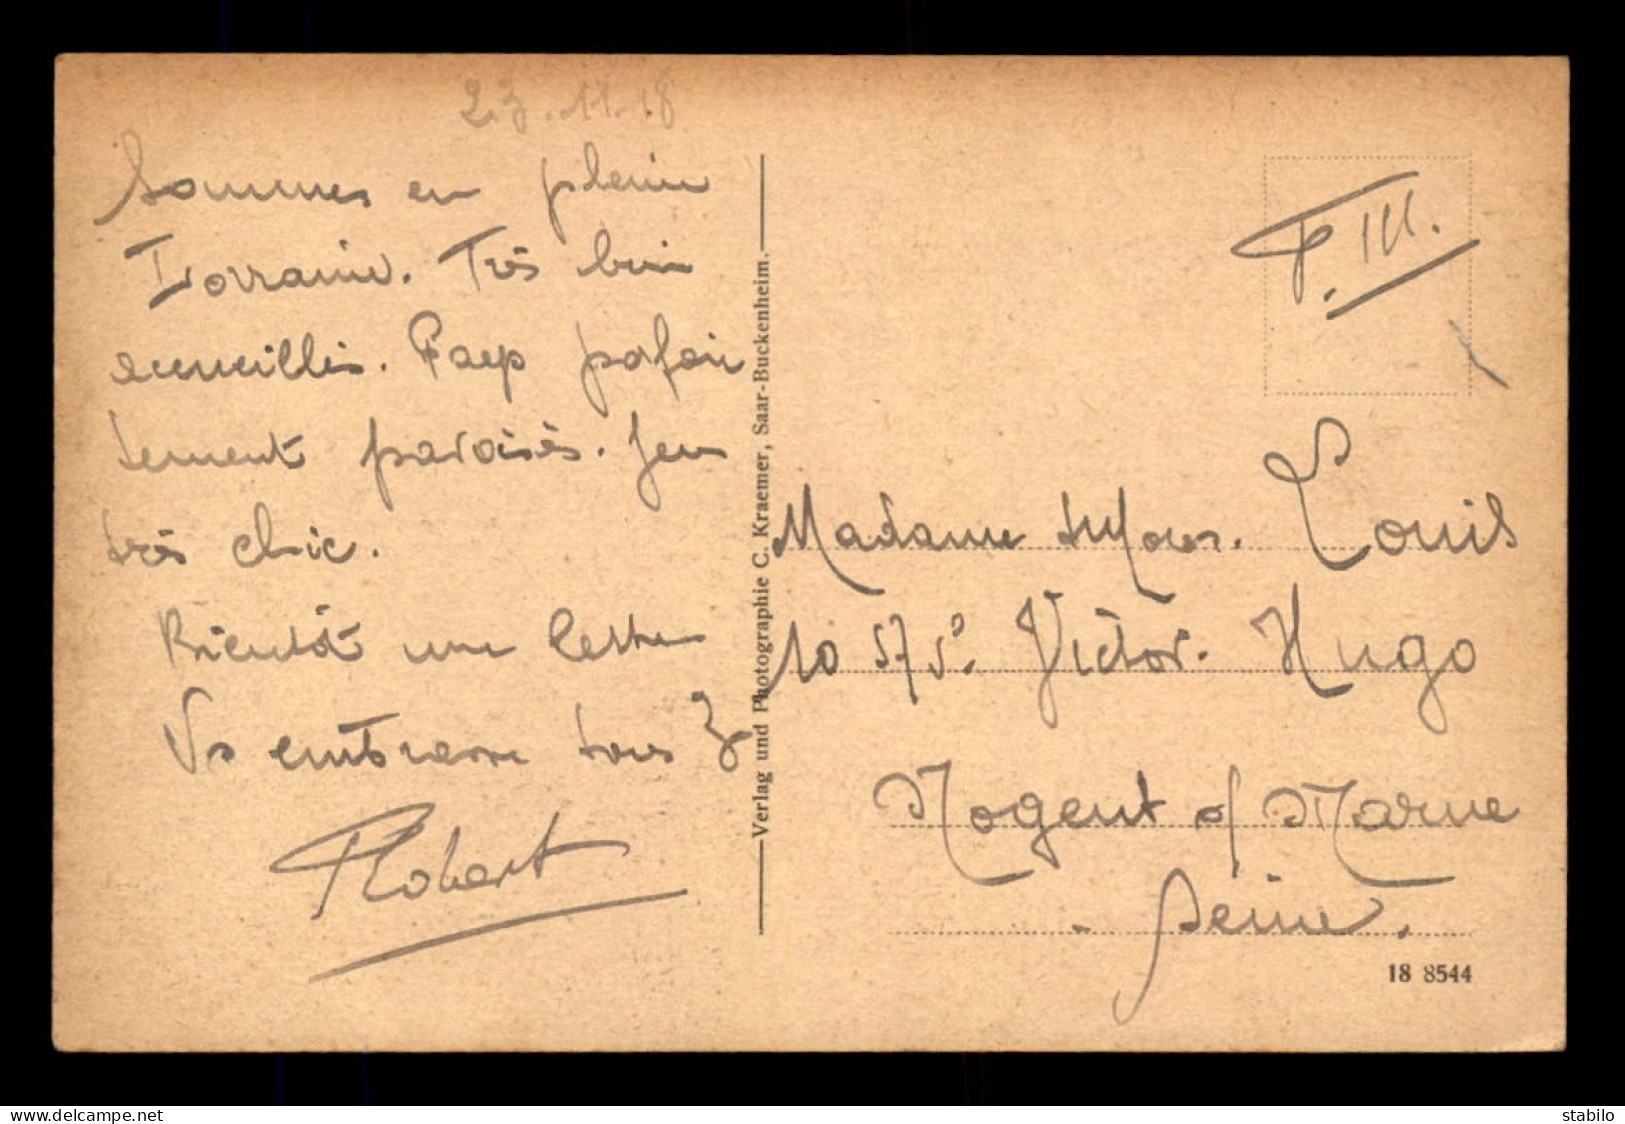 23.11.18
Sommes en plein
Lorraine. Très bien
accueillis. Pays parfai
tement pavoisés. Gens
très chic.
Bientôt une lettre
Vs embrasse tous 3
Robert
Verlag und Photographie C. Kraemer, Saar-Buckenheim.
F. M.
Madame Louis
10 Victor Hugo
Nogent s/ Marne
Seine.
18 8544
delcampe.net
stabilo